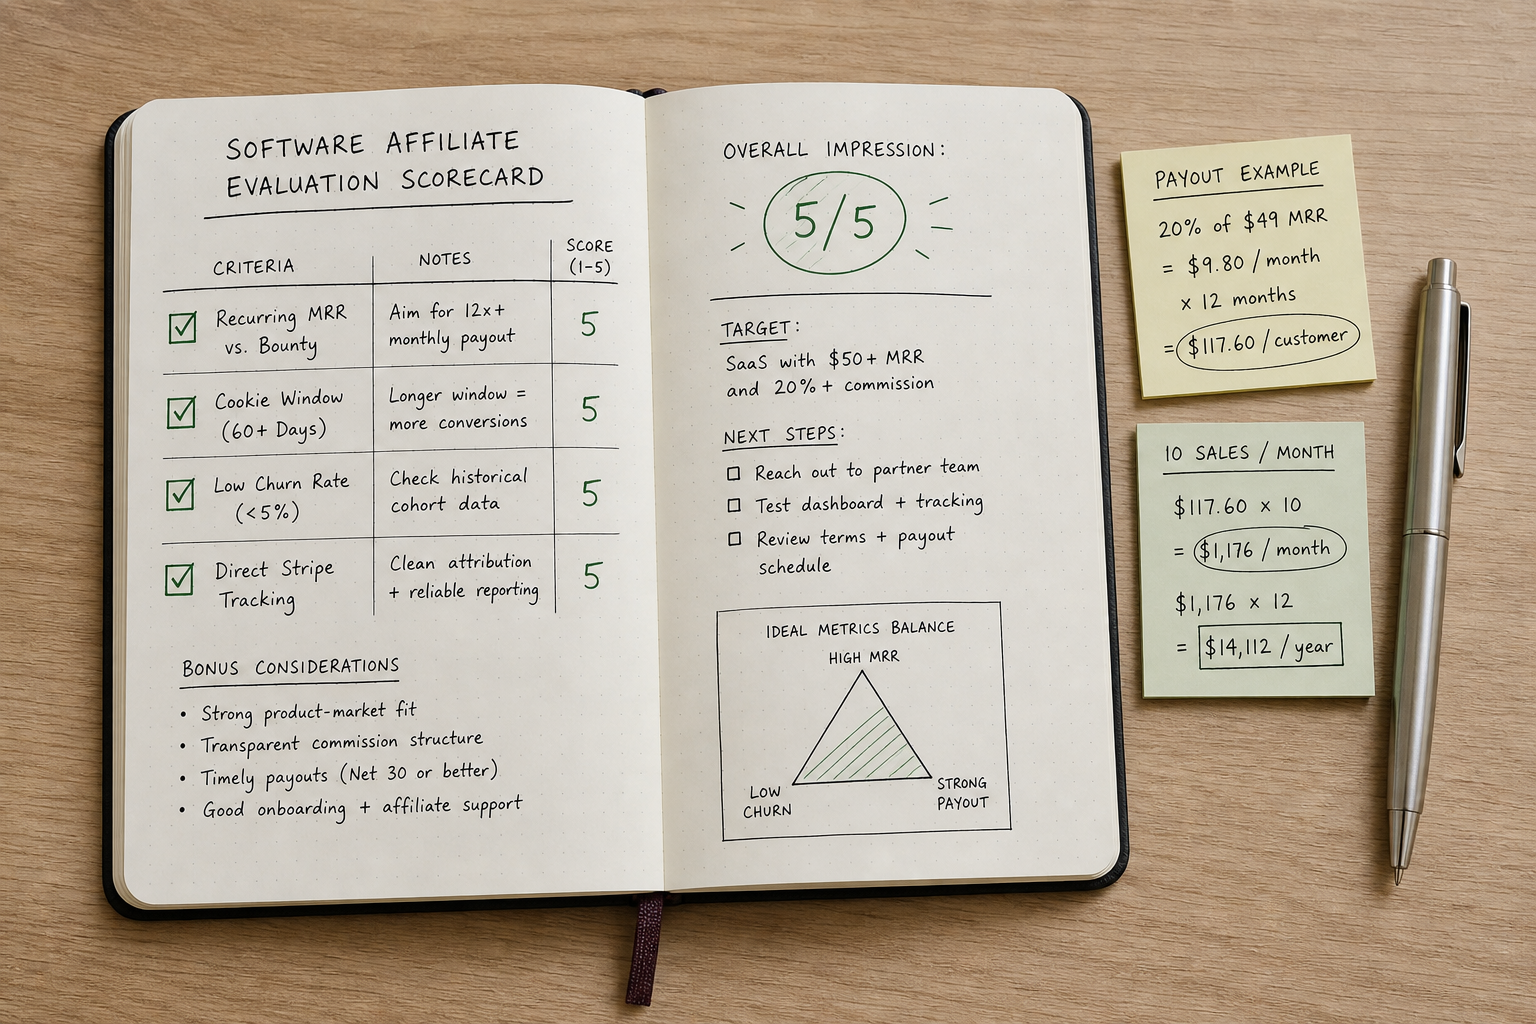 SOFTWARE AFFILIATE
EVALUATION SCORECARD
CRITERIA
NOTES
SCORE
(1-5)
Recurring MRR
vs. Bounty
Aim for 12x+
monthly payout
5
Cookie Window
(60+ Days)
Longer window =
more conversions
5
Low Churn Rate
(<5%)
Check historical
cohort data
5
Direct Stripe
Tracking
Clean attribution
+ reliable reporting
5
BONUS CONSIDERATIONS
• Strong product-market fit
• Transparent commission structure
• Timely payouts (Net 30 or better)
• Good onboarding + affiliate support
OVERALL IMPRESSION:
5/5
TARGET:
SaaS with $50+ MRR
and 20%+ commission
NEXT STEPS:
Reach out to partner team
Test dashboard + tracking
Review terms + payout
schedule
IDEAL METRICS BALANCE
HIGH MRR
LOW
CHURN
STRONG
PAYOUT
PAYOUT EXAMPLE
20% of $49 MRR
= $9.80 / month
x 12 months
= $117.60 / customer
10 SALES / MONTH
$117.60 x 10
= $1,176 / month
$1,176 x 12
= $14,112 / year